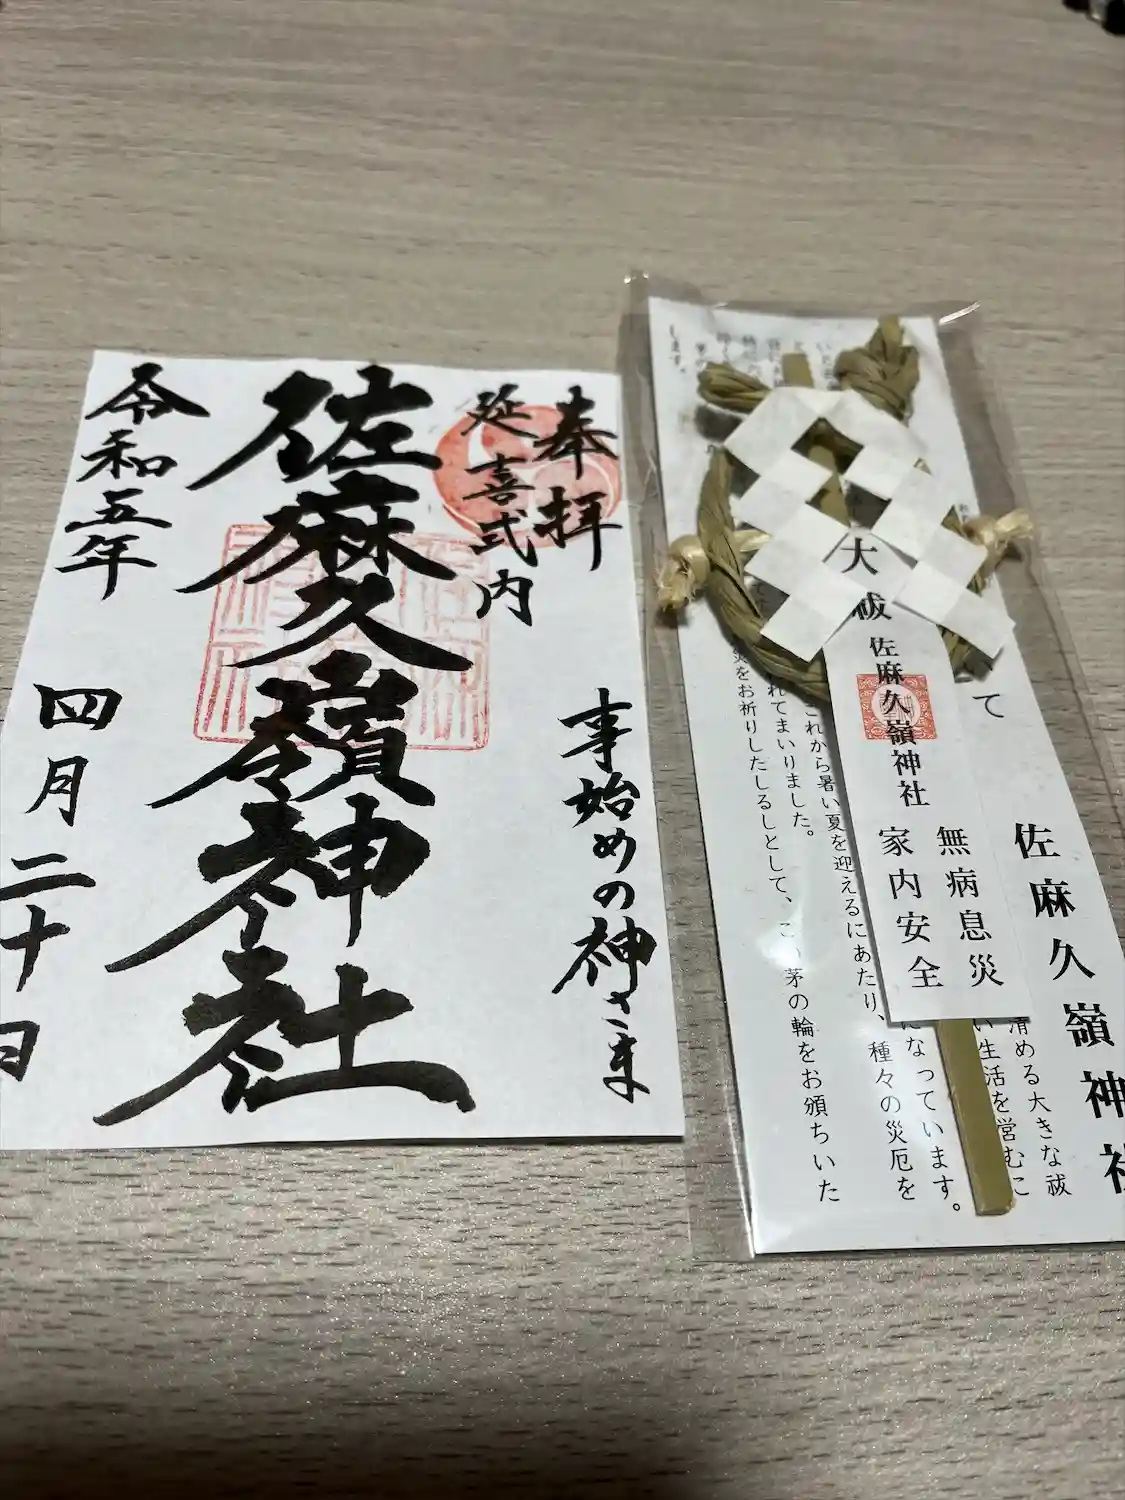 奉拝
延喜式内
事始めの神さま
佐麻久嶺神社
令和五年
四月二十日
大祓
佐麻久嶺神社
無病息災
家内安全
佐麻久嶺神社
清める大きな祓
い生活を営むこ
になっています。
これから暑い夏を迎えるにあたり、種々の災厄を
れてまいりました。
災をお祈りしたしるしとして、この茅の輪をお頒ちいた
します。